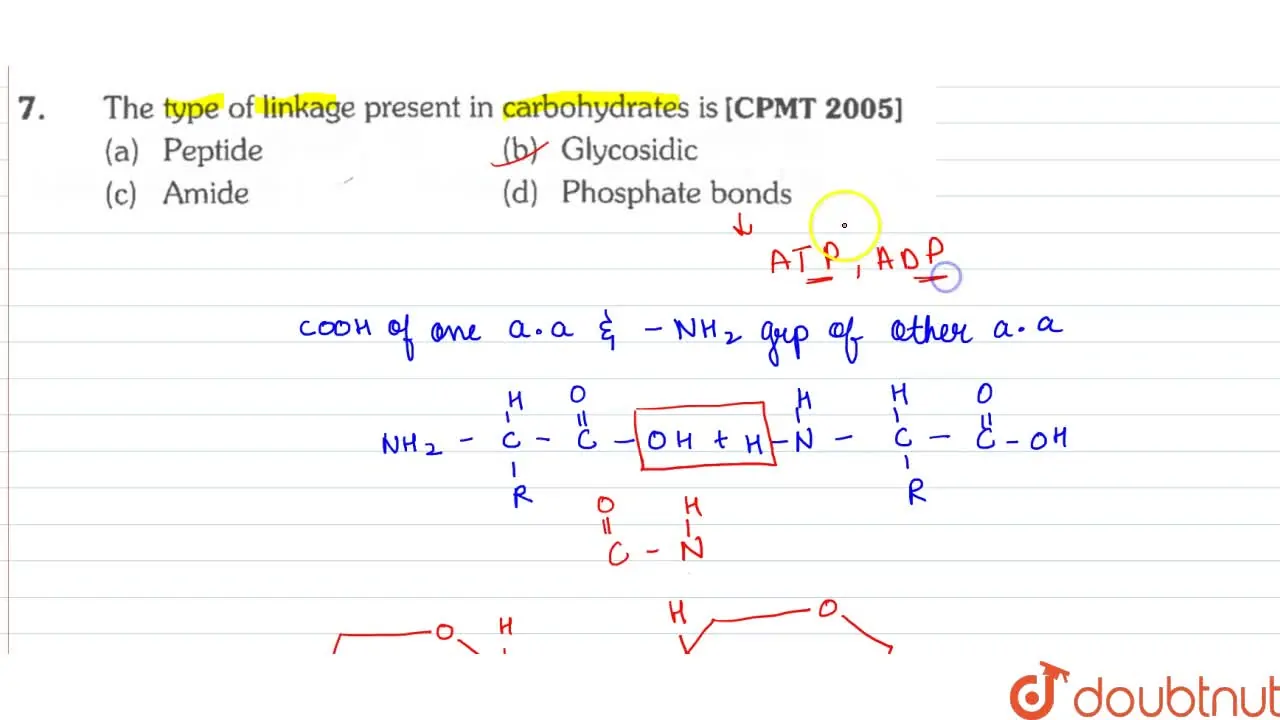 7. The type of linkage present in carbohydrates is [CPMT 2005]
(a) Peptide (b) Glycosidic
(c) Amide (d) Phosphate bonds
↓
ATP, ADP
COOH of one a.a & -NH2 grp of other a.a
H O H H O
NH2 - C - C - OH + H - N - C - C - OH
R R
O H
C - N
H O
O H
doubtnut